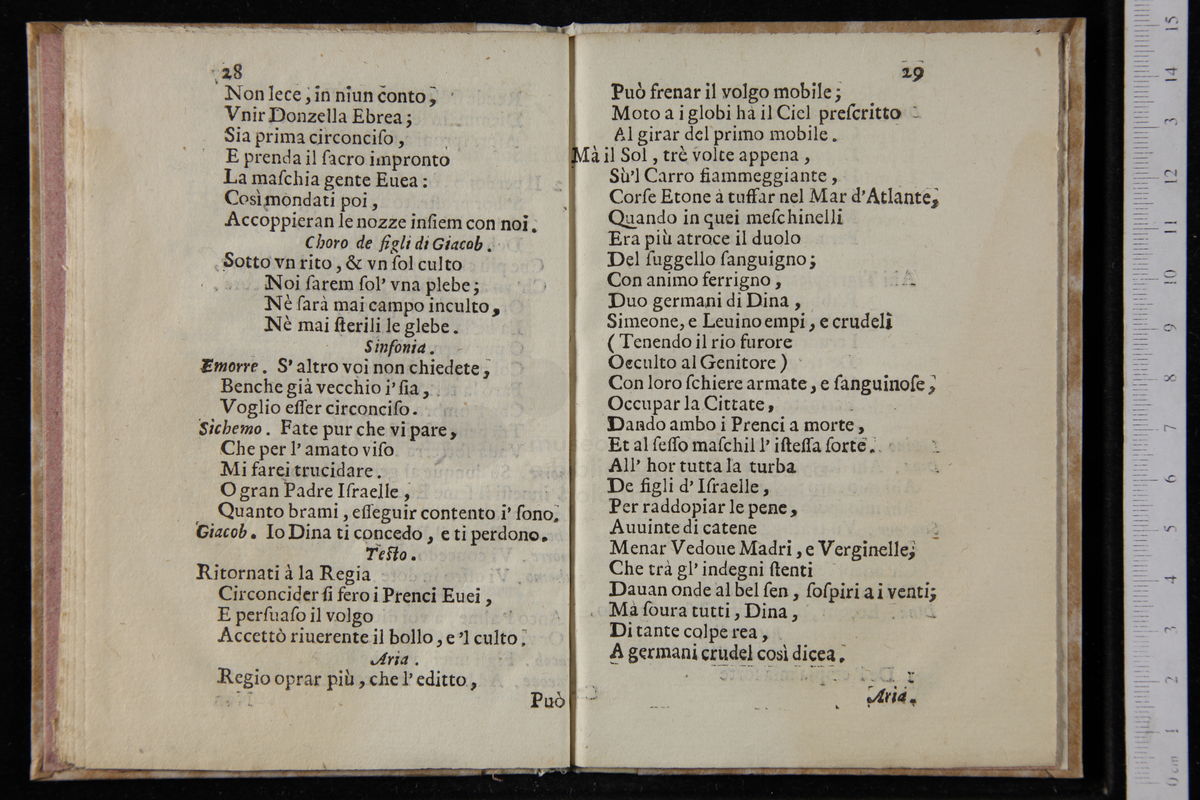 28
Non lece, in niun conto,
Vnir Donzella Ebrea;
Sia prima circonciſo,
E prenda il ſacro impronto
La maſchia gente Euea:
Così mondati poi,
Accoppieran le nozze inſiem con noi.
Choro de figli di Giacob.
Sotto vn rito, & vn ſol culto
Noi ſarem ſol' vna plebe;
Nè ſarà mai campo inculto,
Nè mai ſterili le glebe.
Sinfonia.
Emorre. S' altro voi non chiedete,
Benche già vecchio i' ſia,
Voglio eſſer circonciſo.
Sichemo. Fate pur che vi pare,
Che per l' amato viſo
Mi farei trucidare.
O gran Padre Iſraelle,
Quanto brami, eſſeguir contento i' ſono.
Giacob. Io Dina ti concedo, e ti perdono.
Teſto.
Ritornati à la Regia
Circoncider ſi fero i Prenci Euei,
E perſuaſo il volgo
Accettò riuerente il bollo, e 'l culto.
Aria.
Regio oprar più, che l' editto,
Può
29
Può frenar il volgo mobile;
Moto a i globi hà il Ciel preſcritto
Al girar del primo mobile.
Mà il Sol, trè volte appena,
Sù'l Carro fiammeggiante,
Corſe Etone à tuffar nel Mar d'Atlante,
Quando in quei meſchinelli
Era più atroce il duolo
Del ſuggello ſanguigno;
Con animo ferrigno,
Duo germani di Dina,
Simeone, e Leuino empi, e crudeli
(Tenendo il rio furore
Occulto al Genitore)
Con loro ſchiere armate, e ſanguinoſe,
Occupar la Cittate,
Dando ambo i Prenci a morte,
Et al ſeſſo maſchil l' iſteſſa ſorte.
All' hor tutta la turba
De figli d' Iſraelle,
Per raddopiar le pene,
Auuinte di catene
Menar Vedoue Madri, e Verginelle;
Che trà gl' indegni ſtenti
Dauan onde al bel ſen, ſoſpiri a i venti;
Mà ſoura tutti, Dina,
Di tante colpe rea,
A germani crudel così dicea.
Aria.
0 cm 1 2 3 4 5 6 7 8 9 10 11 12 13 14 15